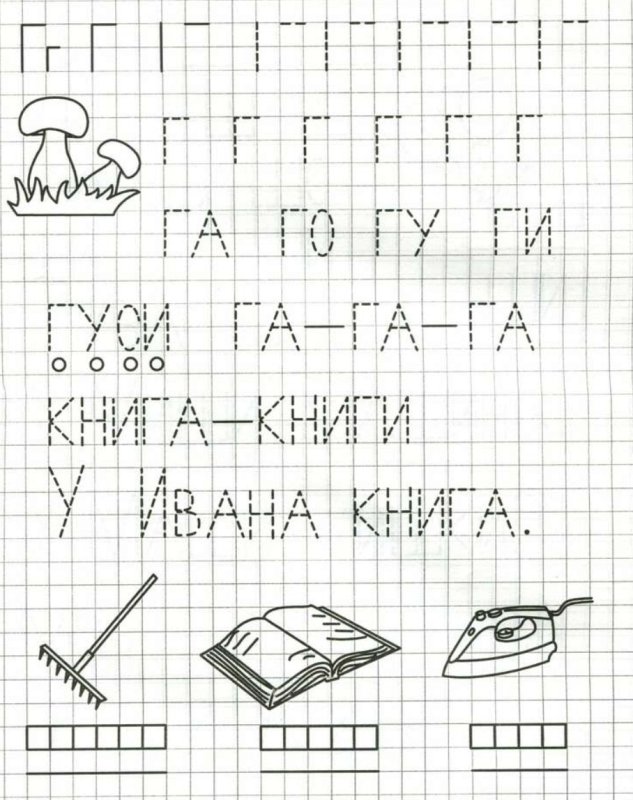 Г г Г
Г Г Г Г Г Г
ГА ГО ГУ ГИ
ГУСИ ГА—ГА—ГА
КНИГА—КНИГИ
У ИВАНА КНИГА.